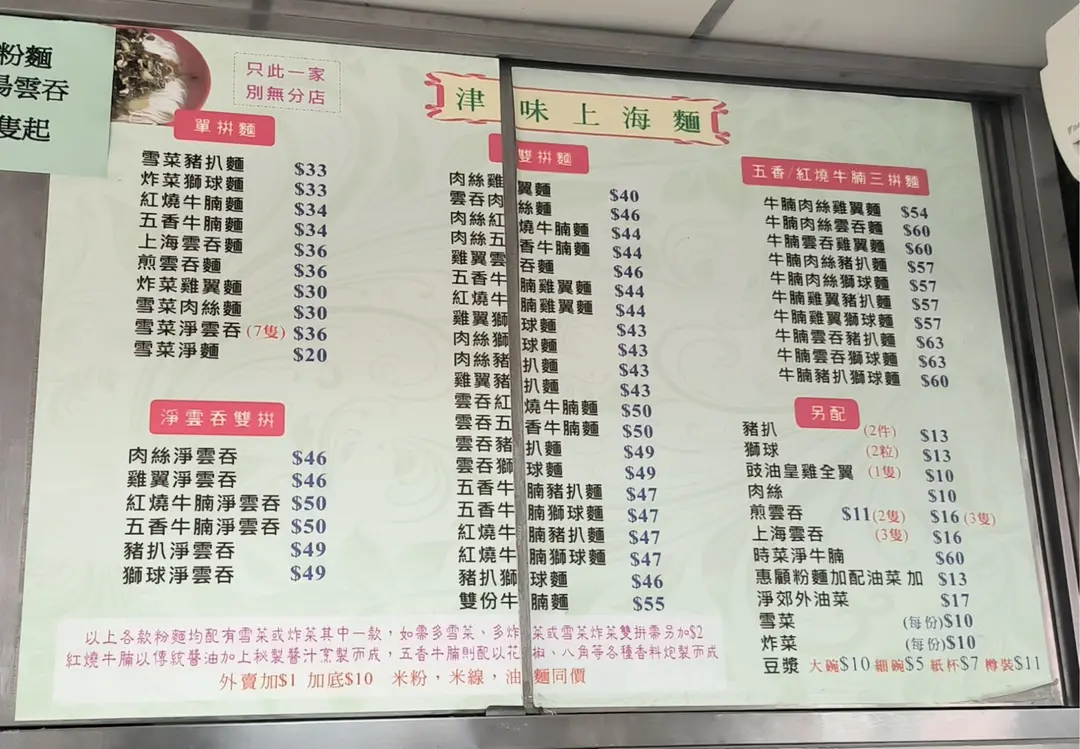 粉麵
湯雲吞
隻起
只此一家
別無分店
津味上海麵
單拚麵
雪菜豬扒麵 $33
炸菜獅球麵 $33
紅燒牛腩麵 $34
五香牛腩麵 $34
上海雲吞麵 $36
煎雲吞麵 $36
炸菜雞翼麵 $30
雪菜肉絲麵 $30
雪菜淨雲吞(7隻) $36
雪菜淨麵 $20
淨雲吞雙拚
肉絲淨雲吞 $46
雞翼淨雲吞 $46
紅燒牛腩淨雲吞 $50
五香牛腩淨雲吞 $50
豬扒淨雲吞 $49
獅球淨雲吞 $49
雙拚麵
肉絲雞翼麵 $40
雲吞肉絲麵 $46
肉絲紅燒牛腩麵 $44
肉絲五香牛腩麵 $44
雞翼雲吞麵 $46
五香牛腩雞翼麵 $44
紅燒牛腩雞翼麵 $44
雞翼獅球麵 $43
肉絲獅球麵 $43
肉絲豬扒麵 $43
雞翼豬扒麵 $43
雲吞紅燒牛腩麵 $50
雲吞五香牛腩麵 $50
雲吞豬扒麵 $49
雲吞獅球麵 $49
五香牛腩豬扒麵 $47
五香牛腩獅球麵 $47
紅燒牛腩豬扒麵 $47
紅燒牛腩獅球麵 $47
豬扒獅球麵 $46
雙份牛腩麵 $55
五香/紅燒牛腩三拚麵
牛腩肉絲雞翼麵 $54
牛腩肉絲雲吞麵 $60
牛腩雲吞雞翼麵 $60
牛腩肉絲豬扒麵 $57
牛腩肉絲獅球麵 $57
牛腩雞翼豬扒麵 $57
牛腩雞翼獅球麵 $57
牛腩雲吞豬扒麵 $63
牛腩雲吞獅球麵 $63
牛腩豬扒獅球麵 $60
另配
豬扒 (2件) $13
獅球 (2粒) $13
豉油皇雞全翼 (1隻) $10
肉絲 $10
煎雲吞 $11(2隻) $16(3隻)
上海雲吞 (3隻) $16
時菜淨牛腩 $60
惠顧粉麵加配油菜 加 $13
淨郊外油菜 $17
雪菜 (每份)$10
炸菜 (每份)$10
豆漿 大碗$10 細碗$5 紙杯$7 樽裝$11
以上各款粉麵均配有雪菜或炸菜其中一款，如需多雪菜、多炸菜或雪菜炸菜雙拚需另加$2
紅燒牛腩以傳統醬油加上秘製醬汁烹製而成，五香牛腩則配以花椒、八角等各種香料炮製而成
外賣加$1 加底$10 米粉，米線，油麵同價